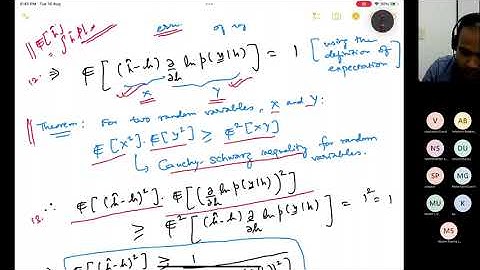 6:45 PM Tue 16 Aug
error of
E[ĥ] = ∫ĥ p(.
12. ⇒ E[(ĥ-h) ∂/∂h ln p(y|h)] = 1 [using the definition of expectation]
X Y
Theorem: For two random variables, X and Y:
E[X²].E[Y²] ≥ E²[XY]
↳ Cauchy-Schwarz inequality for random variables.
13. ∴ E[(ĥ-h)²]. E[(∂/∂h ln p(y|h))²]
≥ E²[(ĥ-h) ∂/∂h ln p(y|h)] = 1² = 1
⇒ E[(ĥ-h)²] ≥ 1
V
AB
NS
DU
SP
MG
M
K
MS